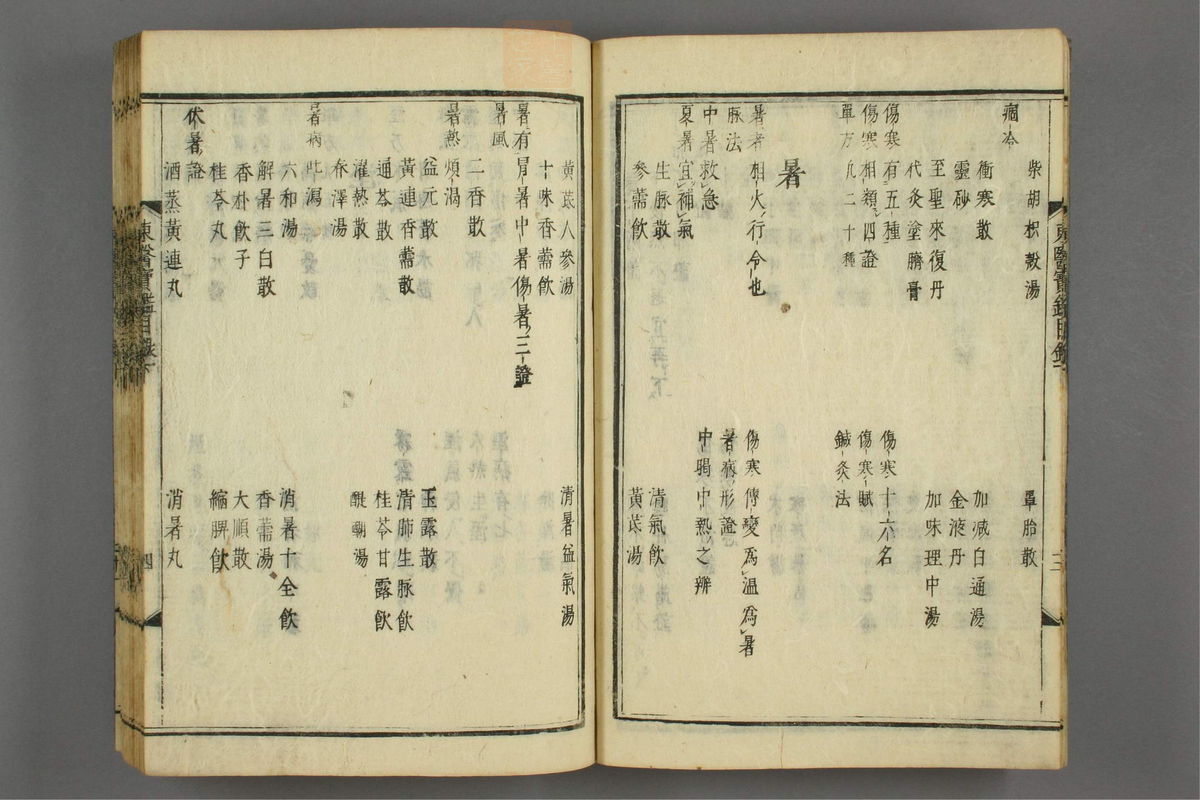 柴胡枳殼湯
單胎散
痼冷
衝寒散
加減白通湯
靈砂
金液丹
至聖來復丹
加味理中湯
代灸塗臍膏
傷寒有五種
傷寒十六名
傷寒相類四證
傷寒賦
單方凡二十種
鍼灸法
暑
暑者相火行令也
傷寒傳變爲溫爲暑
脉法
暑病形證
中暑救急
中暍中熱之辨
夏暑宜補氣
生脉散
清氣飮
參薷飮
黃芪湯
黃芪人參湯
清暑益氣湯
十味香薷飮
暑有冒暑中暑傷暑三證
暑風
二香散
暑熱煩渴
益元散
玉露散
黃連香薷散
清肺生脉飮
通苓散
桂苓甘露飮
濯熱散
醍醐湯
春澤湯
暑病吐瀉
六和湯
消暑十全飮
解暑三白散
香薷湯
香朴飮子
大順散
桂苓丸
縮脾飮
伏暑證
酒蒸黃連丸
消暑丸
東醫寶鑑目錄下
三
東醫寶鑑目錄下
四